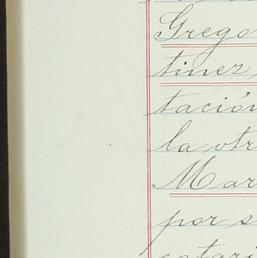 Grego
tinez,
tación
la otr
Mar
por s
cotari